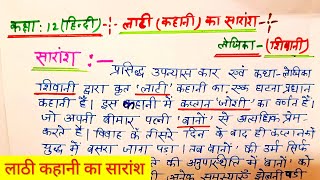 कक्षा:12 (हिन्दी) -:- लाठी (कहानी) का सारांश -:-
लेखिका - (शिवानी)
सारांश :-
प्रसिद्ध उपन्यास कार एवं कथा-लेखिका
शिवानी द्वारा कृत 'लाटी' कहानी का, एक घटना प्रधान
कहानी है। इस कहानी में कप्तान 'जोशी' का वर्णन है।
जो अपनी बीमार पत्नी 'बानो' से अत्यधिक प्रेम-
करते हैं। विवाह के तीसरे दिन के बाद ही कप्तान को
युद्ध में बसरा जाना पड़ा। तब 'बानो' की उम्र सिर्फ
की अनुपस्थिति में 'बानो' को
अनेक समस्याएँ झेलनी पड़ी
लाठी कहानी का सारांश